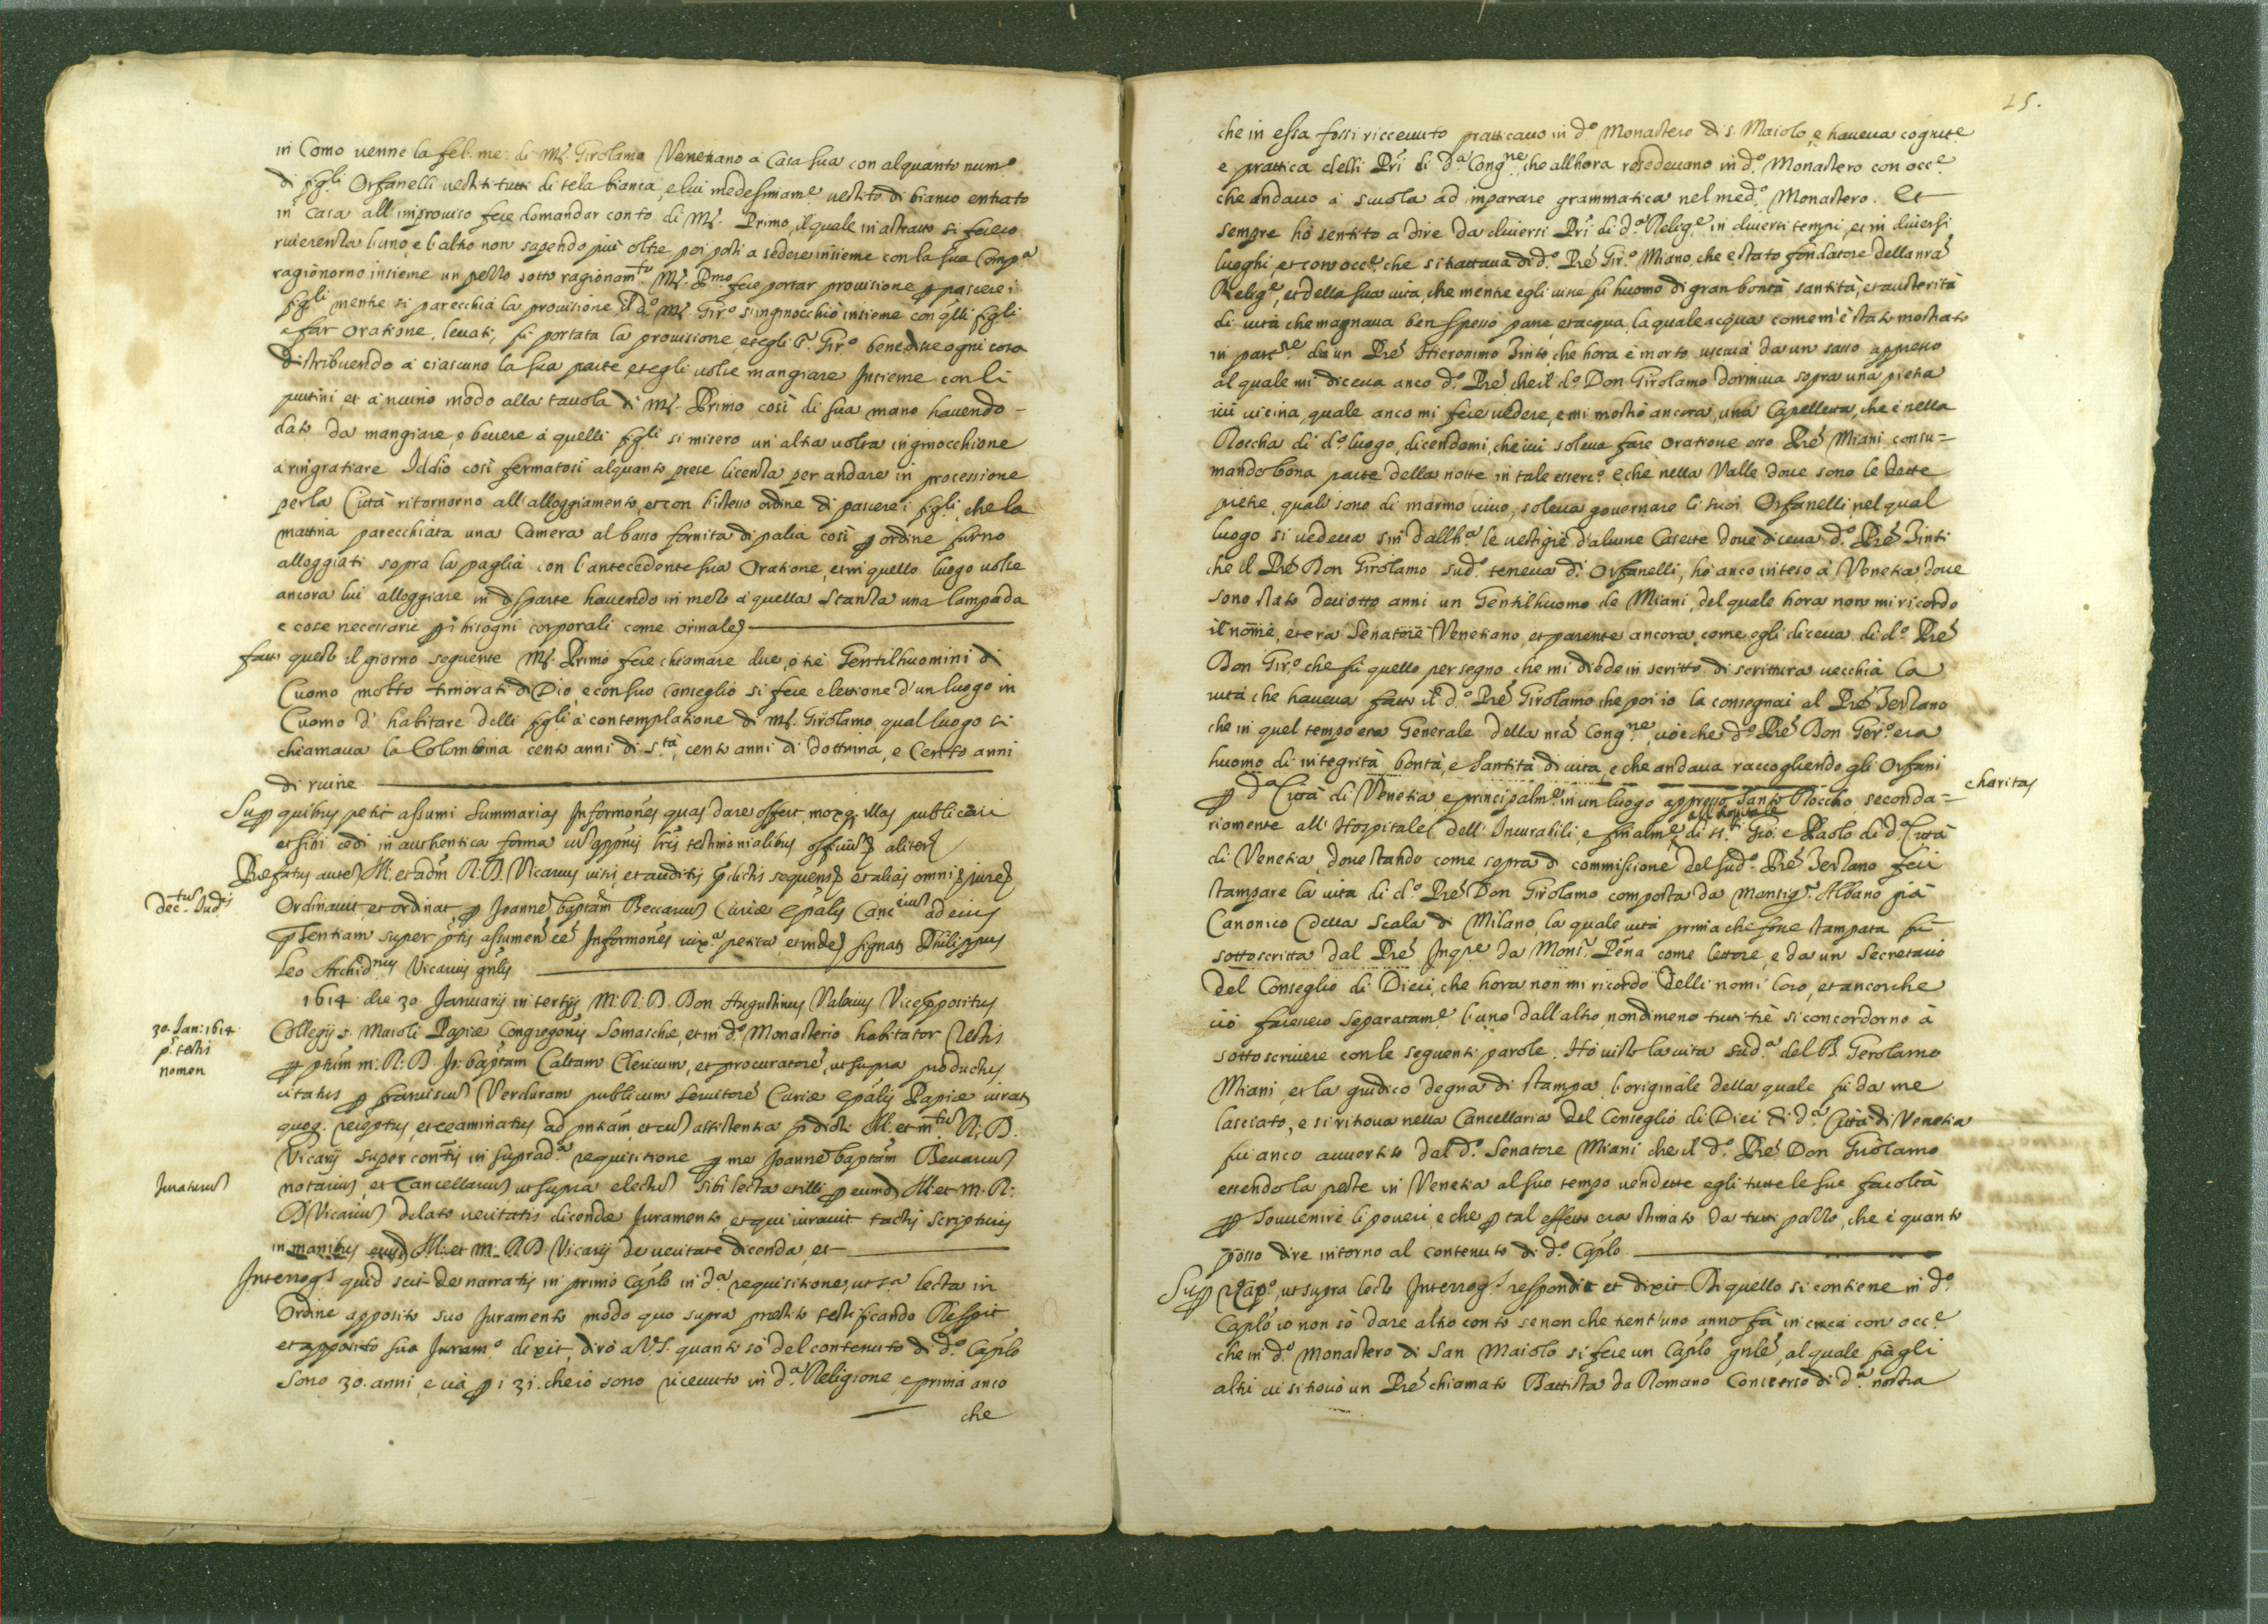 in Como uenne la fel: me: di Mr. Girolamo Venetiano à Casa sua con alquanto num.o
di figli Orfanelli uestiti tutti di tela bianca, e lui medesimam.e uestito di bianco entrato
in Casa all'improuiso fece domandar conto di Mr. Primo, il quale in astratto si fecero
riuerenza l'uno, e l'altro non sapendo più oltre, poi posti a sedere insieme con la sua Comp.a
ragionorno insieme un pezzo sotto ragionam.to Mr. P.mo fece portar prouisione p pascere i
figli mentre si parecchia la prouisione il d.o Mr. Gir.o s'inginocchiò insieme con qlli figli
a far Oratione, leuati, fu portata la prouisione, et egli Gir.o benedisse ogni cosa
distribuendo à ciascuno la sua parte, et egli uolse mangiare Insieme con li
puttini, et a niuino modo alla tauola di Mr. Primo così di sua mano hauendo -
dato da mangiare, e beuere à quelli figli si misero un'altra uolta inginocchione
à ringratiare Iddio così fermatosi alquanto prese licenza per andare in processione
per la Città ritornorno all'alloggiamento, et con l'istesso ordine di pascere i figli, che la
mattina parecchiata una Camera al basso fornita di palia così p ordine furno
alloggiati sopra la paglia con l'antecedente sua Oratione, et in quello luogo uolse
ancora lui alloggiare in disparte hauendo in mezo a quella stanza una lampada
e cose necessarie p i bisogni corporali come orinale
fatto questo il giorno seguente Mr. Primo fece chiamare due, ò trè Gentilhuomini di
Cuomo molto timorati di Dio, e con suo Conseglio si fece elettione d'un luogo in
Cuomo d'habitare delli figli à contemplatione di Mr. Girolamo, qual luogo si
chiamaua la Colombina cento anni di s.tà, cento anni di dottrina, e Cento anni
di ruine
Sup quibus petit assumi summarias Informones quas dare offert, moxq. illas publicari
et sibi cedi in authentica forma
Prefatus autem Ill. et adm R: D. Vicarius uisis, et auditis
Dec.tum Jud.is
Ordinauit et ordinat p Joannem baptam Beccarium Curiæ Epalis Canc.rium ad eius
pntiam super ptis assumen. eē Informones petita, et inde signat. Philippus
Leo Archid.nus Vicarius gnlis
1614 die 30 Januarij in tertijs M: R: D. Don Augustinus Valerius Vicepposituss
30. Jan: 1614
p.s testis
nomen
Collegij s. Maioli Papiæ Congregonis Somaschæ, et in d.o Monasterio habitator Testis
p ptum m: R: D. Jo: baptam Caltam Clericum, et procuratorem, ut supra productus
citatus p franciscum Verduram publicum Seruitorem Curiæ Epalis Papiæ iurat.
quoq. receptus, et examinatus ad pntiam, et cum assistentia pdicti Ill. et m.tum R: D.
Vicarij super contis in suprad.a requisitione p me Joannem baptam Beccarium
Juratus
notarium, et Cancellarium ut supra electum sibi lecta et illi p eumdem Ill. et m. R:
D. Vicarium delato ueritatis dicendæ Juramento, et qui iurauit tactis scripturis
in manibus eiusd. Ill: et m: R. D. Vicarij de ueritate dicenda, et
Interrog.s quid scit de narratis in primo Caplo in d.a requisitione, ut s.a lecta in
Ordine apposito suo Juramento modo quo supra prestito testificando Respit
et apposito suo Juram.o dixit, dirò a V.S. quanto sò del contenuto di d.o Caplo
Sono 30. anni, e uà p i 31. che io sono riceuuto in d.a Religione, e prima anco
che
25.
che in essa fossi ricceuuto pratticauo in d.o Monastero di s. Maiolo, e haueua cognit.e
e prattica delli Pri di d.a Cong.ne, che allhora resedeuano in d.o Monastero con occ.e
che andauo à scuola ad imparare grammatica nel med.o Monastero. Et
sempre hò sentito a dire da diuersi Pri di d.a Relig.e in diuersi tempi, et in diuersi
luoghi, et con occ.e che si trattaua di d.o Prē Gir.o Miano, che è stato fondatore della nra
Relig.e, et della sua uita, che mentre egli uisse fu huomo di gran bontà, santità, et austerità
di uita che magnaua ben spesso pane, et acqua, la quale acqua come m'è stato mostrato
in part.re da un Prē Hieronimo Tinto, che hora è morto usciua da un sasso appresso
al quale mi diceua anco d.o Prē che il d.o Don Girolamo dormiua sopra una pietra
iui uicina, quale anco mi fece uedere, e mi mostrò ancora, una Capelletta, che è nella
Roccha di d.o luogo, dicendomi, che iui soleua fare oratione esso Prē Miani consu=
mando bona parte della notte in tale esserc.o e che nella Valle doue sono le dette
pietre, quali sono di marmo uiuo, soleua gouernare li suoi Orfanelli, nel qual
luogo si uedeua sin dall'h.a le uestigie d'alcune Casette doue diceua d.o Prē Tinti
che il Prē Don Girolamo sud.o teneua d.i Orfanelli, hò anco inteso à Venetia, doue
sono stato deciotto anni un Gentilhuomo de Miani, del quale hora non mi ricordo
il nome, et era Senatore Venetiano, et parente ancora, come egli diceua di d.o Prē
Don Gir.o che fu quello per segno che mi diede in scritto di scrittura uecchia la
uita che haueua fatto il d.o Prē Girolamo che poi io la consegnai al Prē Terzano
che in quel tempo era Generale della nra Cong.ne, cioè che d.o Prē Don Ger.o era
huomo di integrità, bontà, e Santità di uita, e che andaua raccogliendo gli Orfani
charitas
p d.a Città di Venetia, e principalm.e in un luogo appresso Santo Roccho seconda=
all'hospitale
riamente all'Hospitale dell'Incurabili, e finalm.e di st.ti Gio: e Paolo di d.a Città
di Venetia, doue stando come sopra di commissione del sud.o Prē Terzano feci
stampare la uita di d.o Prē Don Girolamo composta da Monsig.r Albano già
Canonico della Scala di Milano, la quale uita prima che fosse stampata fu
sottoscritta dal Prē Inq.re da Mons.r Pena come lettore, e da un Secretario
del Conseglio di Dieci, che hora non mi ricordo delli nomi loro, et ancorche
ciò facessero separatam.e l'uno dall'altro, nondimeno tutti trè si concordorno à
sottoscriuere con le seguenti parole. Hò uisto la uita sud.a del B. Gerolamo
Miani, et la giudico degna di stampa, l'originale della quale fu da me
lasciato, e si ritroua nella Cancellaria del Conseglio di Dieci di d.a Città di Venetia
fui anco auuertito dal d.o Senatore Miani che il d.o Prē Don Girolamo
essendo la peste in Venetia al suo tempo uendette egli tutte le sue facoltà
p souuenire li poueri, e che p tal effetto era stimato da tutti pazzo, che è quanto
posso dire intorno al contenuto di d.o Caplo
Sup 2.o Cap.o, ut supra lecto Interrog.s respondit et dixit. Di quello si contiene in d.o
Caplo io non sò dare altro conto se non che trent'uno anno fà in circa con occ.e
che in d.o Monastero di San Maiolo si fece un Caplo gnle, al quale fà gli
altri ui si trouò un Prē chiamato Battista da Romano Conuerso di d.a nostra